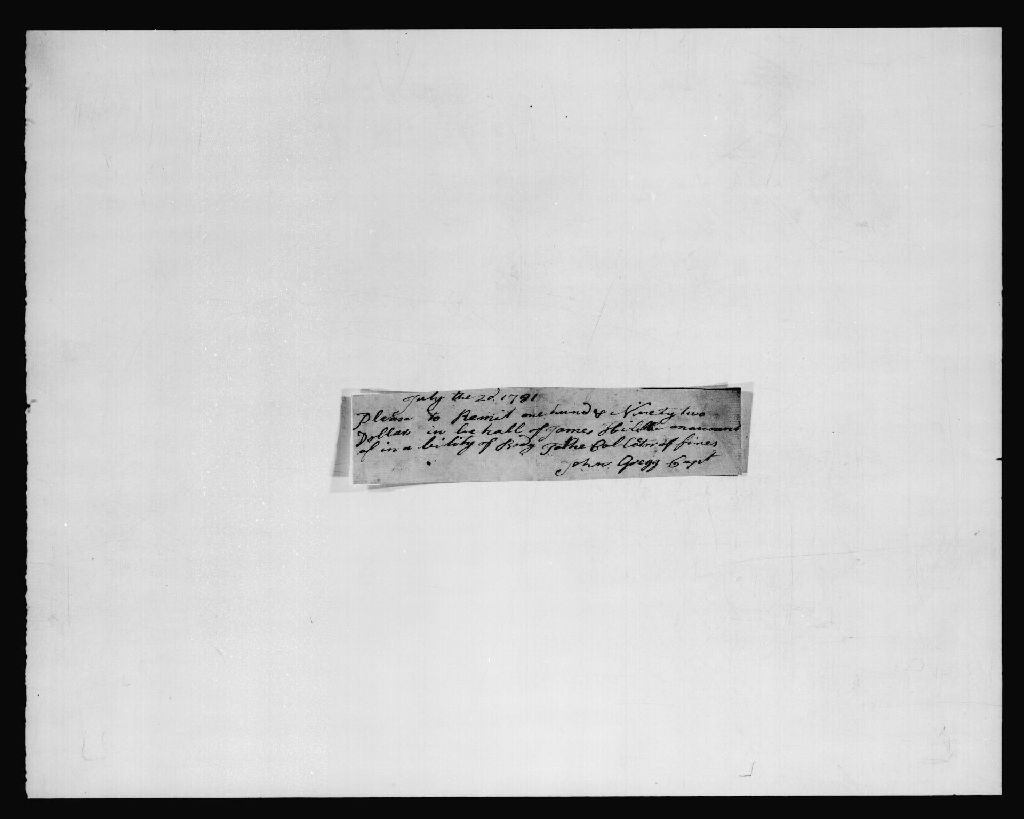 July the 2d 1781
Please to Remit one hund & Ninety two
Dollars in be half of James on account
of in a bility of Body To the Collector of fines
John Gregg Capt